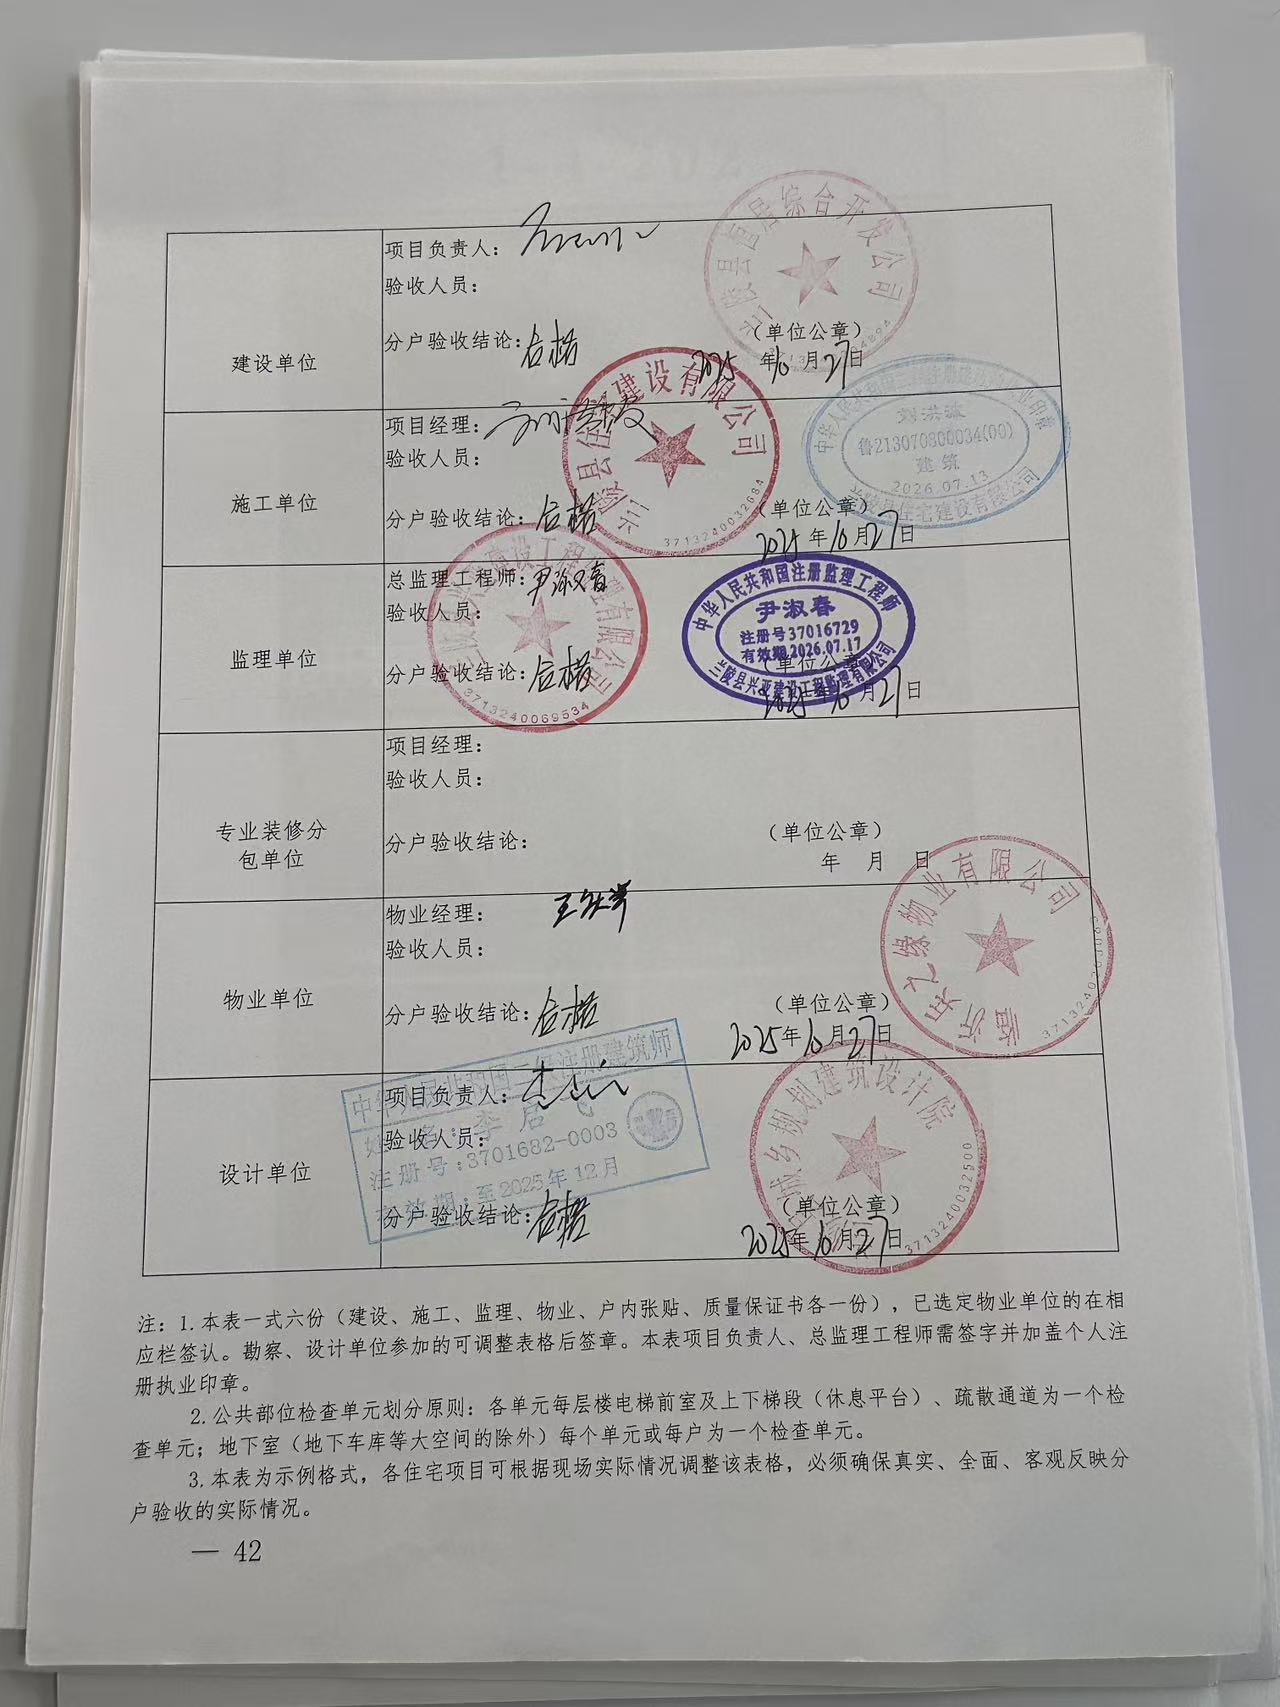 建设单位
项目负责人：
验收人员：
分户验收结论：合格
（单位公章）
2025年10月27日
县宜居综合开发公司
施工单位
项目经理：
验收人员：
分户验收结论：合格
（单位公章）
2025年10月27日
兰陵县住宅建设有限公司
3713240032684
鲁213070800034(00)
建筑
2026.07.13
兰陵县住宅建设有限公司
监理单位
总监理工程师：尹淑春
验收人员：
分户验收结论：合格
（单位公章）
2025年10月27日
建设工程监理有限公司
3713240069534
中华人民共和国注册监理工程师
尹淑春
注册号37016729
有效期2026.07.17
兰陵县兴亚建设工程监理有限公司
专业装修分
包单位
项目经理：
验收人员：
分户验收结论：
（单位公章）
年 月 日
物业单位
物业经理：
验收人员：
分户验收结论：合格
（单位公章）
2025年10月27日
之缘物业有限公司
设计单位
项目负责人：
验收人员：
分户验收结论：合格
（单位公章）
2025年10月27日
中华人民共和国二级注册建筑师
注册号：3701682-0003
有效期：至2025年12月
城乡规划建筑设计院
3713240032500
注：1.本表一式六份（建设、施工、监理、物业、户内张贴、质量保证书各一份），已选定物业单位的在相
应栏签认。勘察、设计单位参加的可调整表格后签章。本表项目负责人、总监理工程师需签字并加盖个人注
册执业印章。
2.公共部位检查单元划分原则：各单元每层楼电梯前室及上下梯段（休息平台）、疏散通道为一个检
查单元；地下室（地下车库等大空间的除外）每个单元或每户为一个检查单元。
3.本表为示例格式，各住宅项目可根据现场实际情况调整该表格，必须确保真实、全面、客观反映分
户验收的实际情况。
— 42